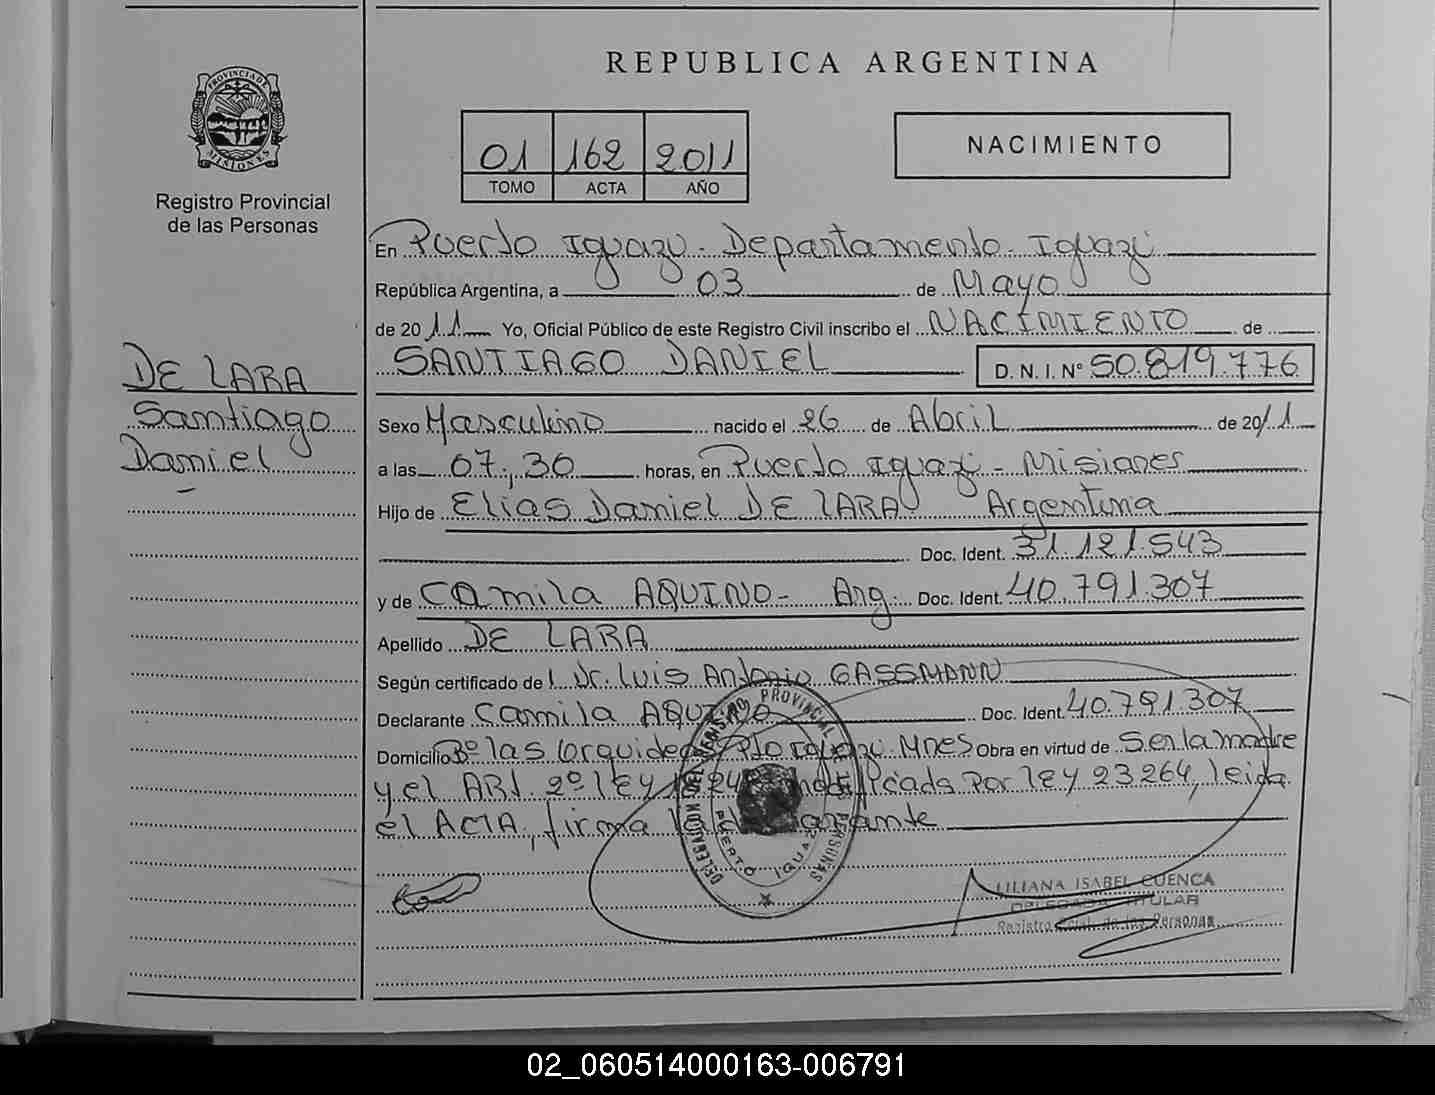 REPUBLICA ARGENTINA
PROVINCIA DE MISIONES
Registro Provincial
de las Personas
01 162 2011
TOMO ACTA AÑO
NACIMIENTO
En Puerto Iguazú - Departamento Iguazú
República Argentina, a 03 de Mayo
de 2011 Yo, Oficial Público de este Registro Civil inscribo el NACIMIENTO de
SANTIAGO DANIEL D. N. I. N° 50.819.776
DE LARA
Santiago
Daniel
Sexo Masculino nacido el 26 de Abril de 2011
a las 07:30 horas, en Puerto Iguazú - Misiones
Hijo de Elias Daniel DE LARA Argentina
Doc. Ident. 31.121.543
y de Camila AQUINO - Arg. Doc. Ident. 40.791.307
Apellido DE LARA
Según certificado de Dr. Luis Antonio GASSMANN
Declarante Camila AQUINO Doc. Ident. 40.791.307
Domicilio B° las Orquideas Pto Iguazú. Mnes Obra en virtud de Ser la madre
y el ARt. 2° lEY modificada Por lEY 23264, leida
el ACtA, firma la declarante
DELEGACION DEL REGISTRO PROVINCIAL DE LAS PERSONAS
PUERTO IGUAZU
LILIANA ISABEL CUENCA
DELEGADA TITULAR
Registro Pcial. de las Personas
02_060514000163-006791